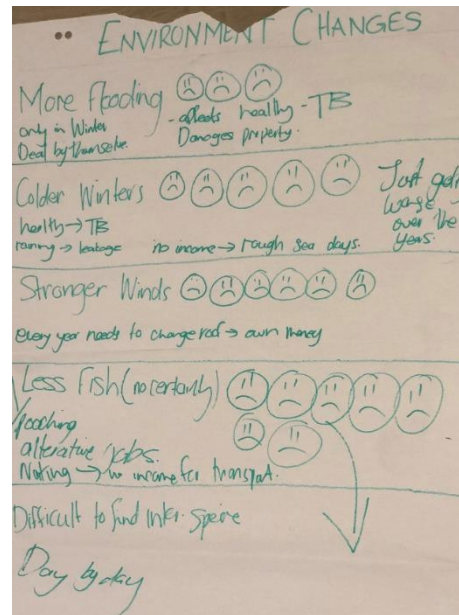 ENVIRONMENT CHANGES
More Flooding
only in Winter
Deal by themselve
- affects healthy - TB
Damages property.
Colder Winters
health → TB
raining → leakage
no income → rough sea days.
Just gets
worse
over the
years.
Stronger Winds
every year needs to change roof → own money
Less Fish (no certainty)
poaching
alterative jobs.
→ no income for transport.
Difficult to find
Day by day